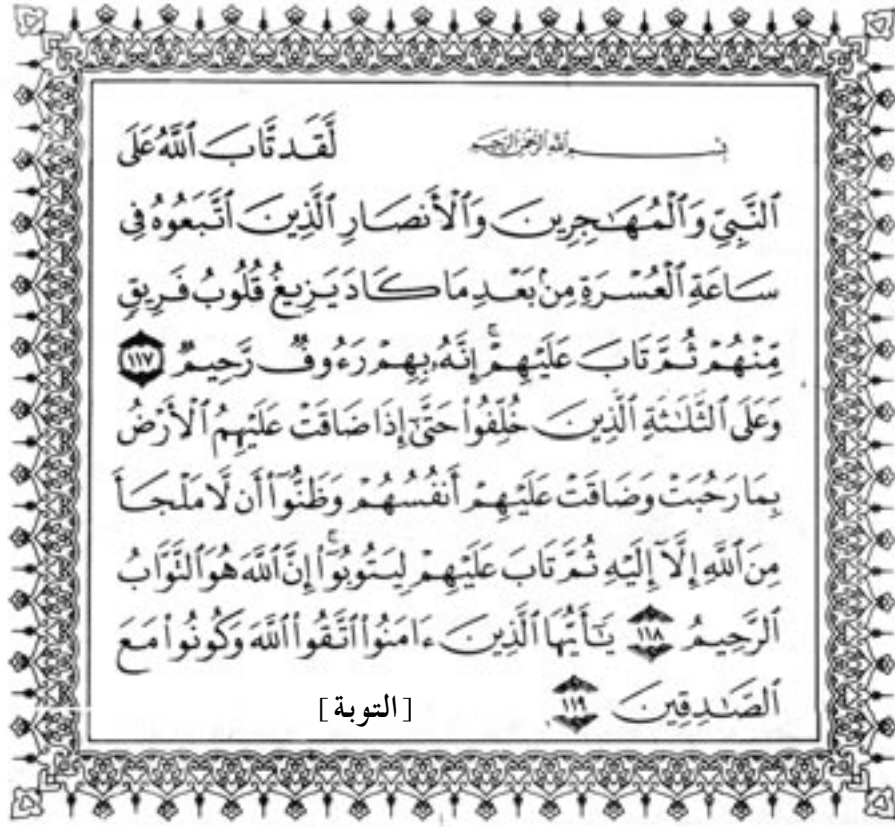 بِسْمِ ٱللَّهِ ٱلرَّحْمَٰنِ ٱلرَّحِيمِ لَّقَد تَّابَ ٱللَّهُ عَلَى
ٱلنَّبِيِّ وَٱلْمُهَٰجِرِينَ وَٱلْأَنصَارِ ٱلَّذِينَ ٱتَّبَعُوهُ فِى
سَاعَةِ ٱلْعُسْرَةِ مِنۢ بَعْدِ مَا كَادَ يَزِيغُ قُلُوبُ فَرِيقٍ
مِّنْهُمْ ثُمَّ تَابَ عَلَيْهِمْ ۚ إِنَّهُۥ بِهِمْ رَءُوفٌ رَّحِيمٌ ١١٧
وَعَلَى ٱلثَّلَٰثَةِ ٱلَّذِينَ خُلِّفُوا۟ حَتَّىٰٓ إِذَا ضَاقَتْ عَلَيْهِمُ ٱلْأَرْضُ
بِمَا رَحُبَتْ وَضَاقَتْ عَلَيْهِمْ أَنفُسُهُمْ وَظَنُّوٓا۟ أَن لَّا مَلْجَأَ
مِنَ ٱللَّهِ إِلَّآ إِلَيْهِ ثُمَّ تَابَ عَلَيْهِمْ لِيَتُوبُوٓا۟ ۚ إِنَّ ٱللَّهَ هُوَ ٱلتَّوَّابُ
ٱلرَّحِيمُ ١١٨ يَٰٓأَيُّهَا ٱلَّذِينَ ءَامَنُوا۟ ٱتَّقُوا۟ ٱللَّهَ وَكُونُوا۟ مَعَ
ٱلصَّٰدِقِينَ ١١٩ [التوبة]